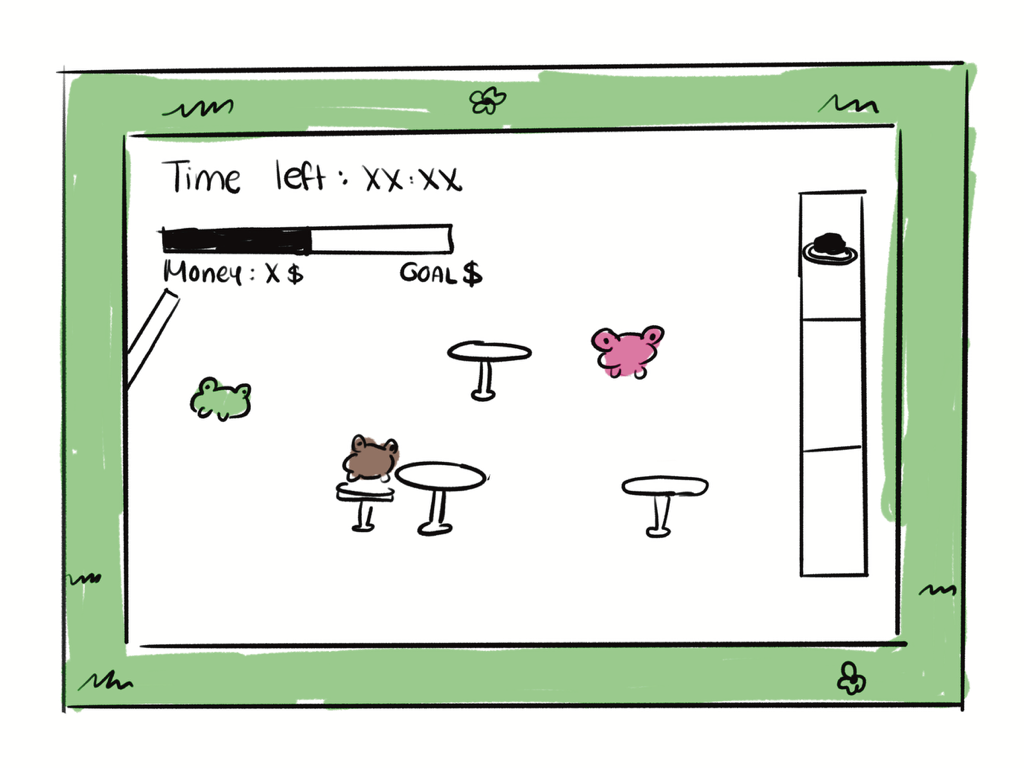 Time left: XX:XX
Money: X $ GOAL $